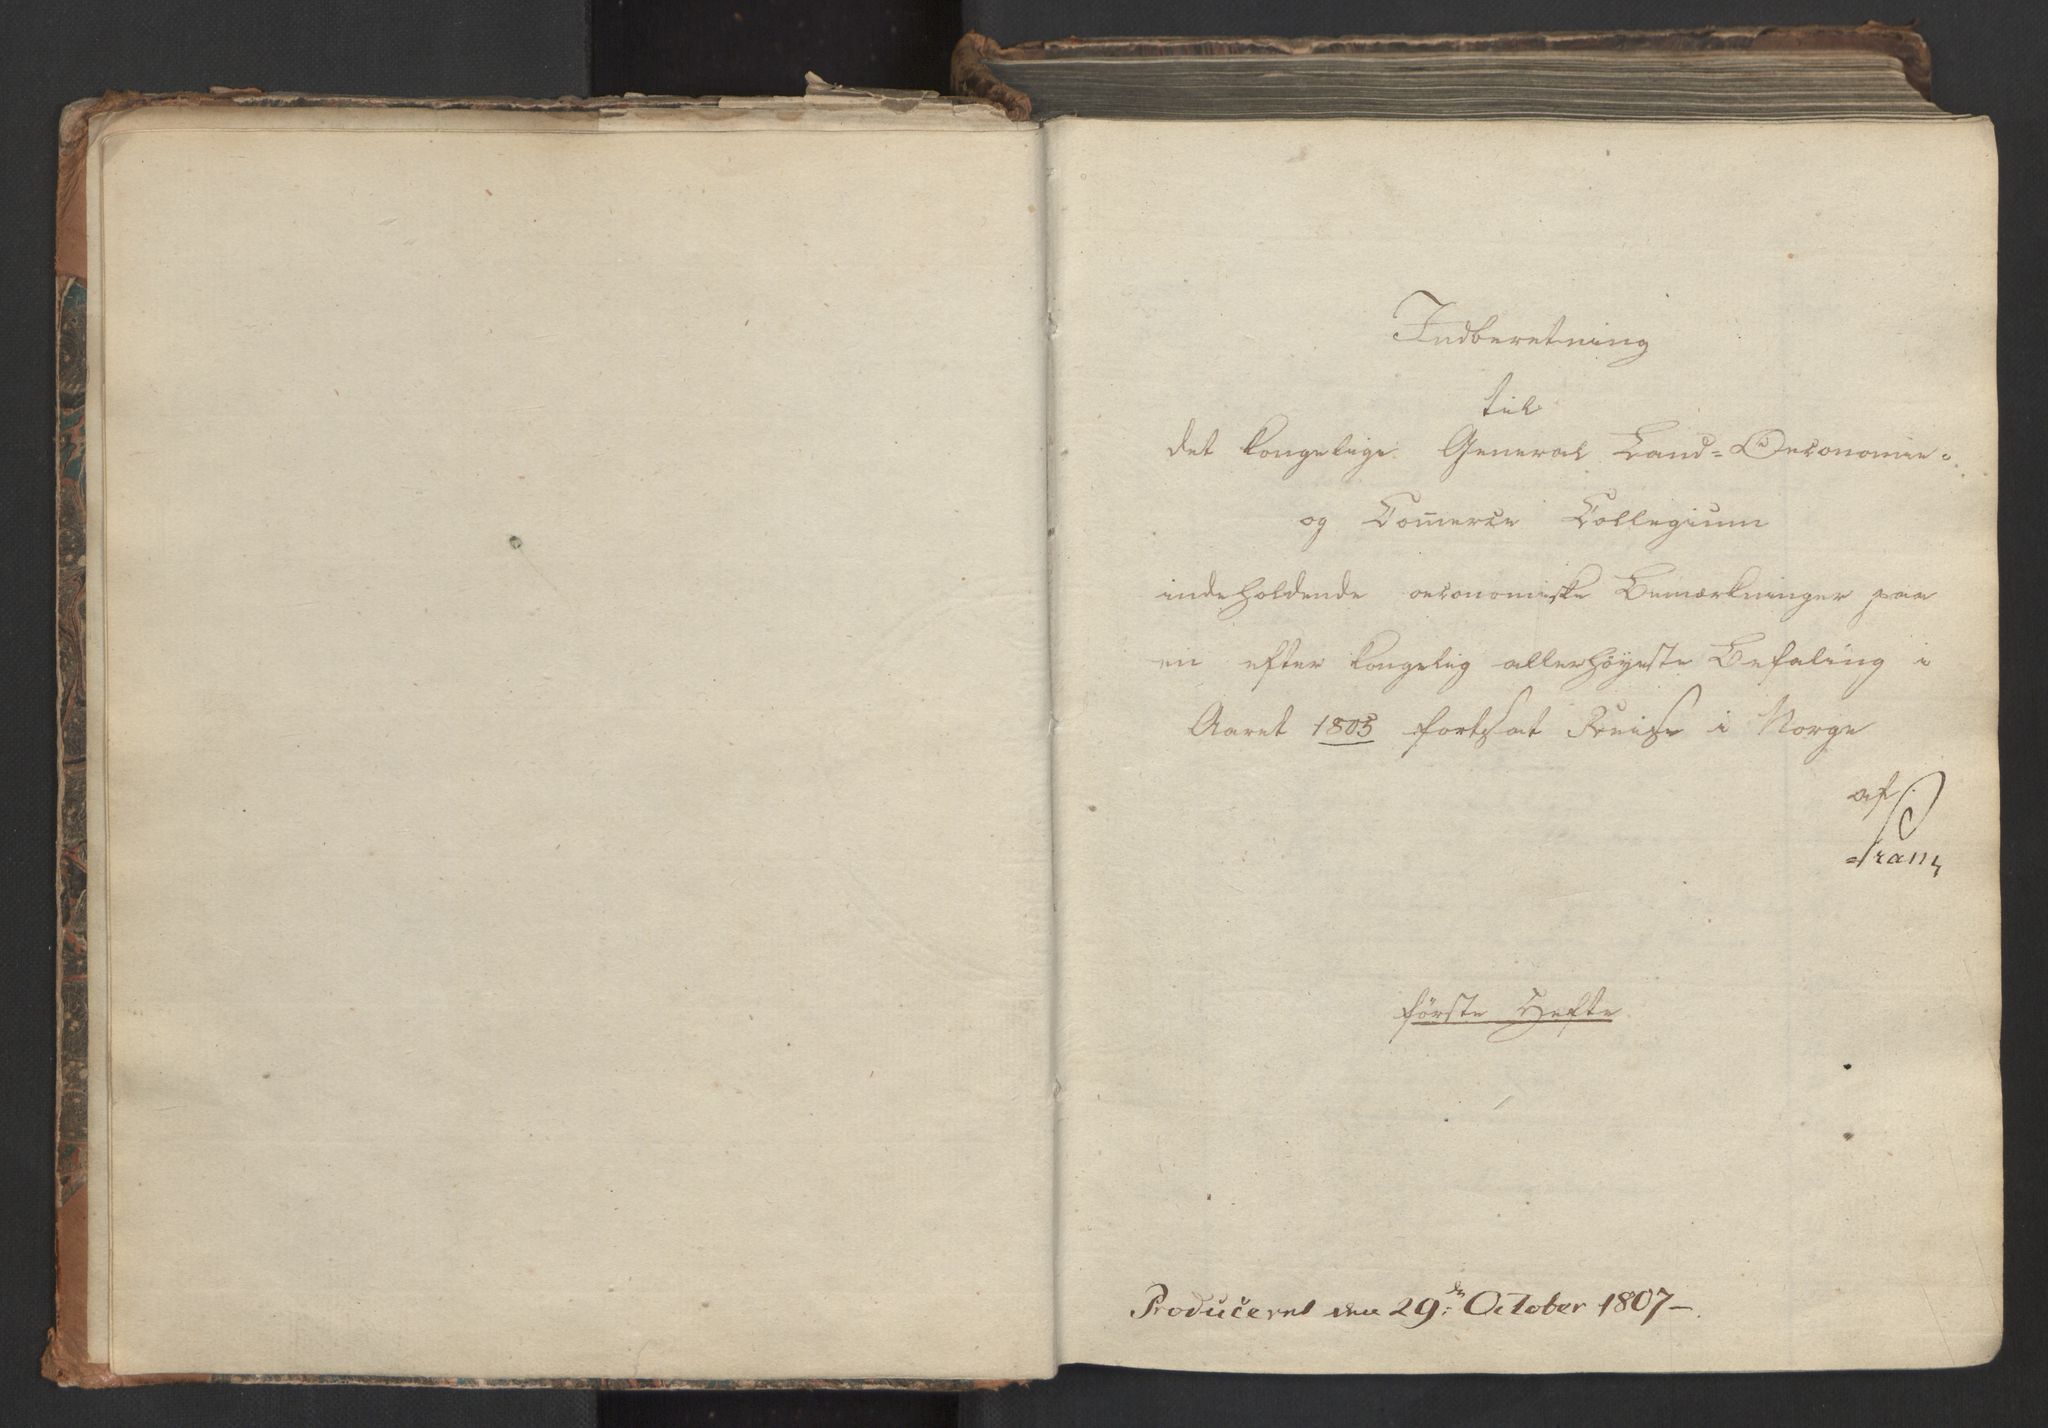 Indberetning
til
det kongelige General Land-Oeconomie-
og Com̅erce Collegium
indeholdende oeconomiske Bemærkninger paa
en efter kongelig allerhöyeste Befaling i
Aaret 1805 fortsat Reise i Norge
af
Pram
förste Hefte
Produceret den 29:de October 1807-